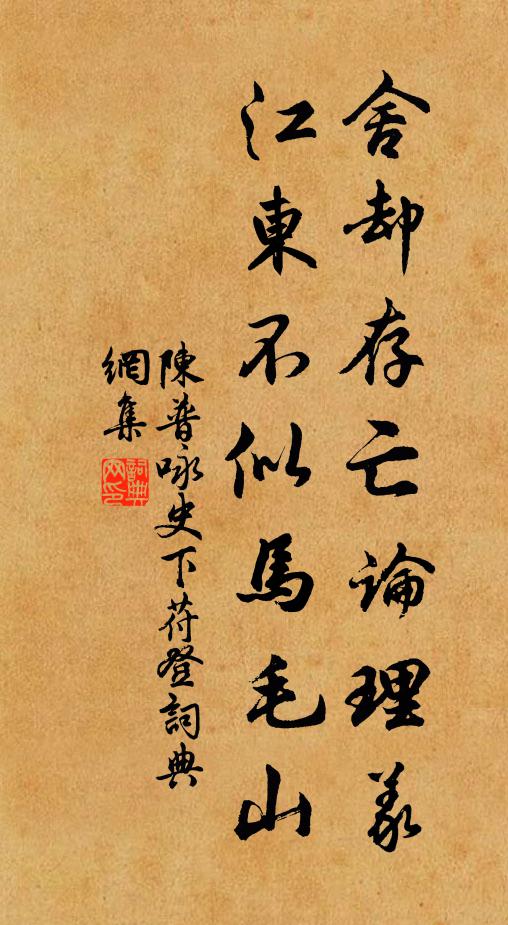 舍却存亡論理義
江東不似馬毛山
陳普咏史下苻登詞典
網集
詞典
网印